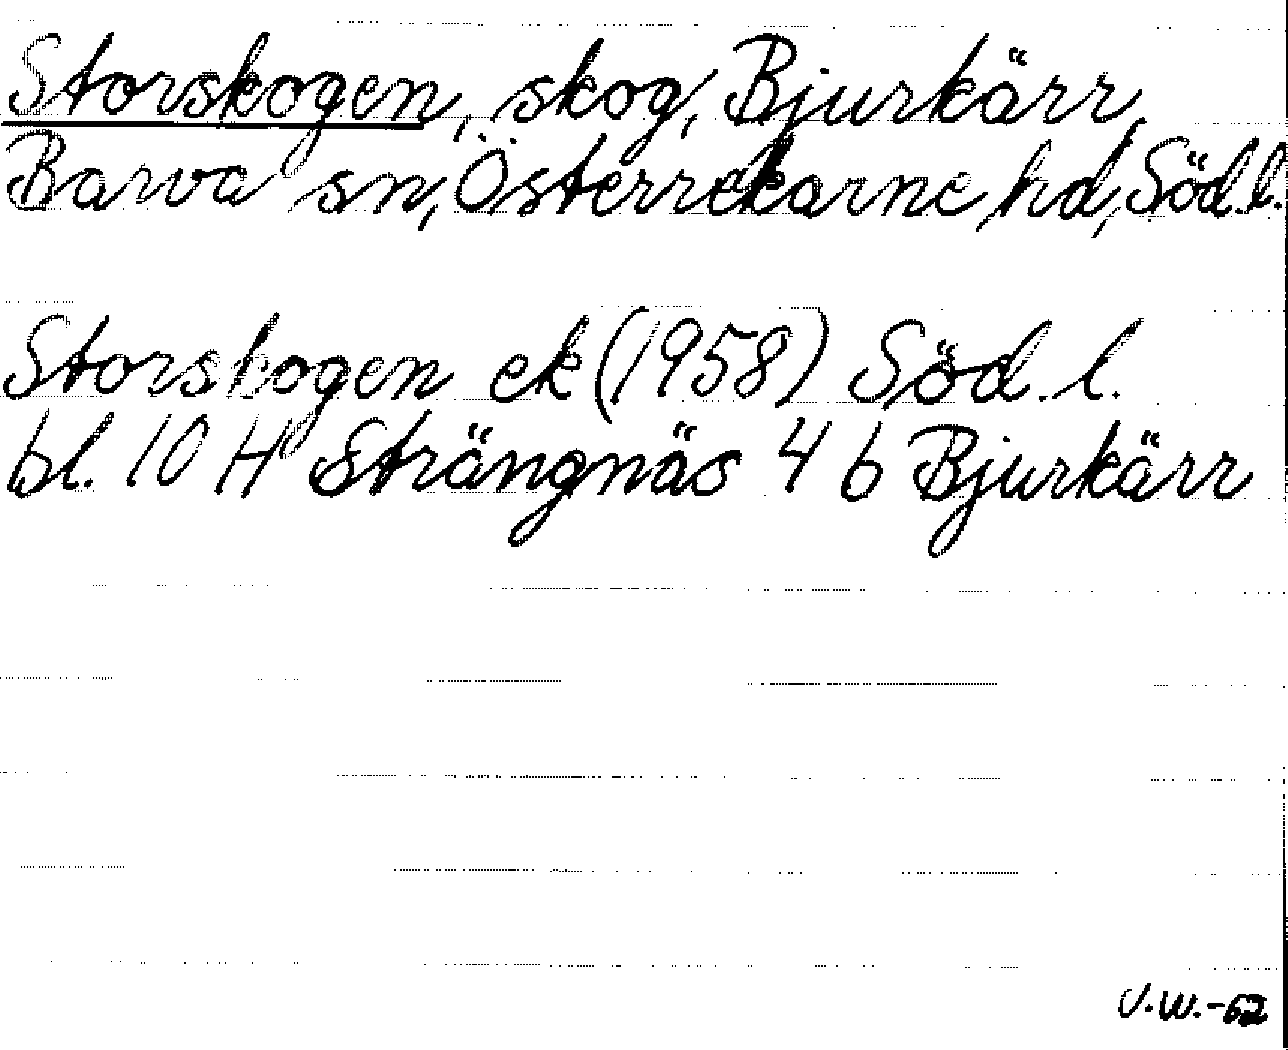 Storskogen, skog, Bjurkärr,
Barva sn, Österrekarne hd, Söd.l.
Storskogen ek (1958) Söd. l.
bl. 10 H Strängnäs 4 b Bjurkärr
V.W.-62